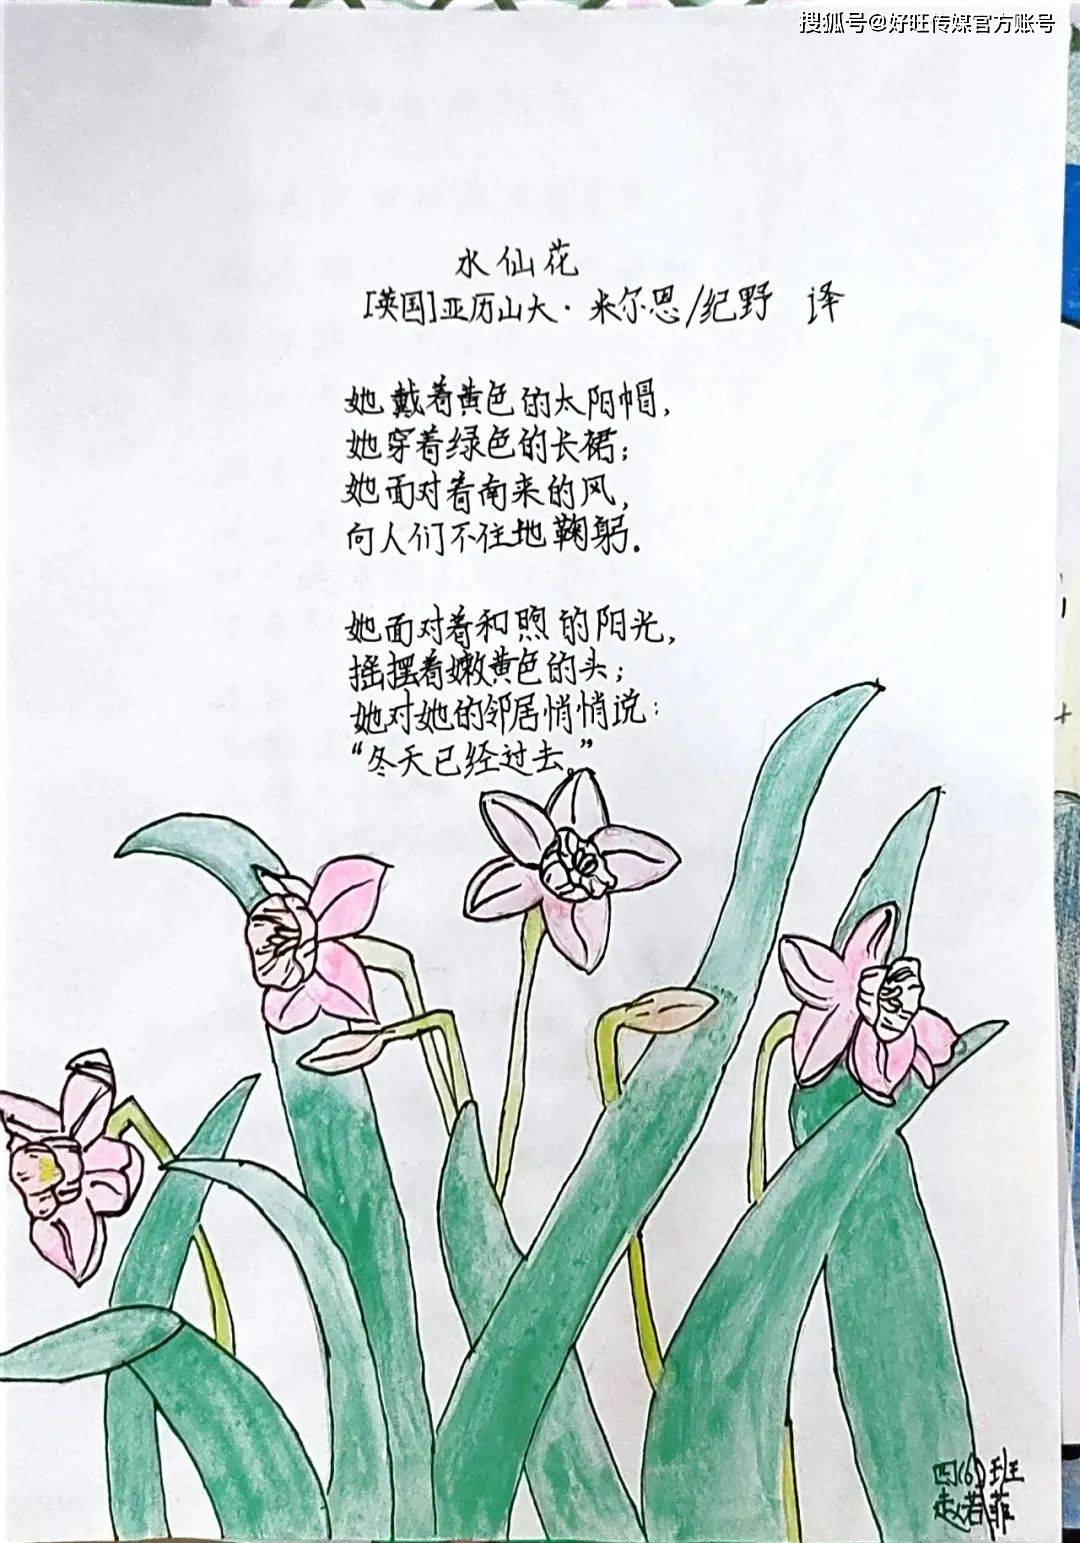 搜狐号@好旺传媒官方账号
水仙花
[英国]亚历山大·米尔恩/纪野 译
她戴着黄色的太阳帽,
她穿着绿色的长裙;
她面对着南来的风,
向人们不住地鞠躬.
她面对着和煦的阳光,
摇摆着嫩黄色的头;
她对她的邻居悄悄说:
“冬天已经过去。”
四(6)班
赵若菲